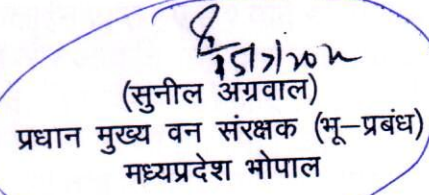 (सुनील अग्रवाल)
प्रधान मुख्य वन संरक्षक (भू–प्रबंध)
मध्यप्रदेश भोपाल